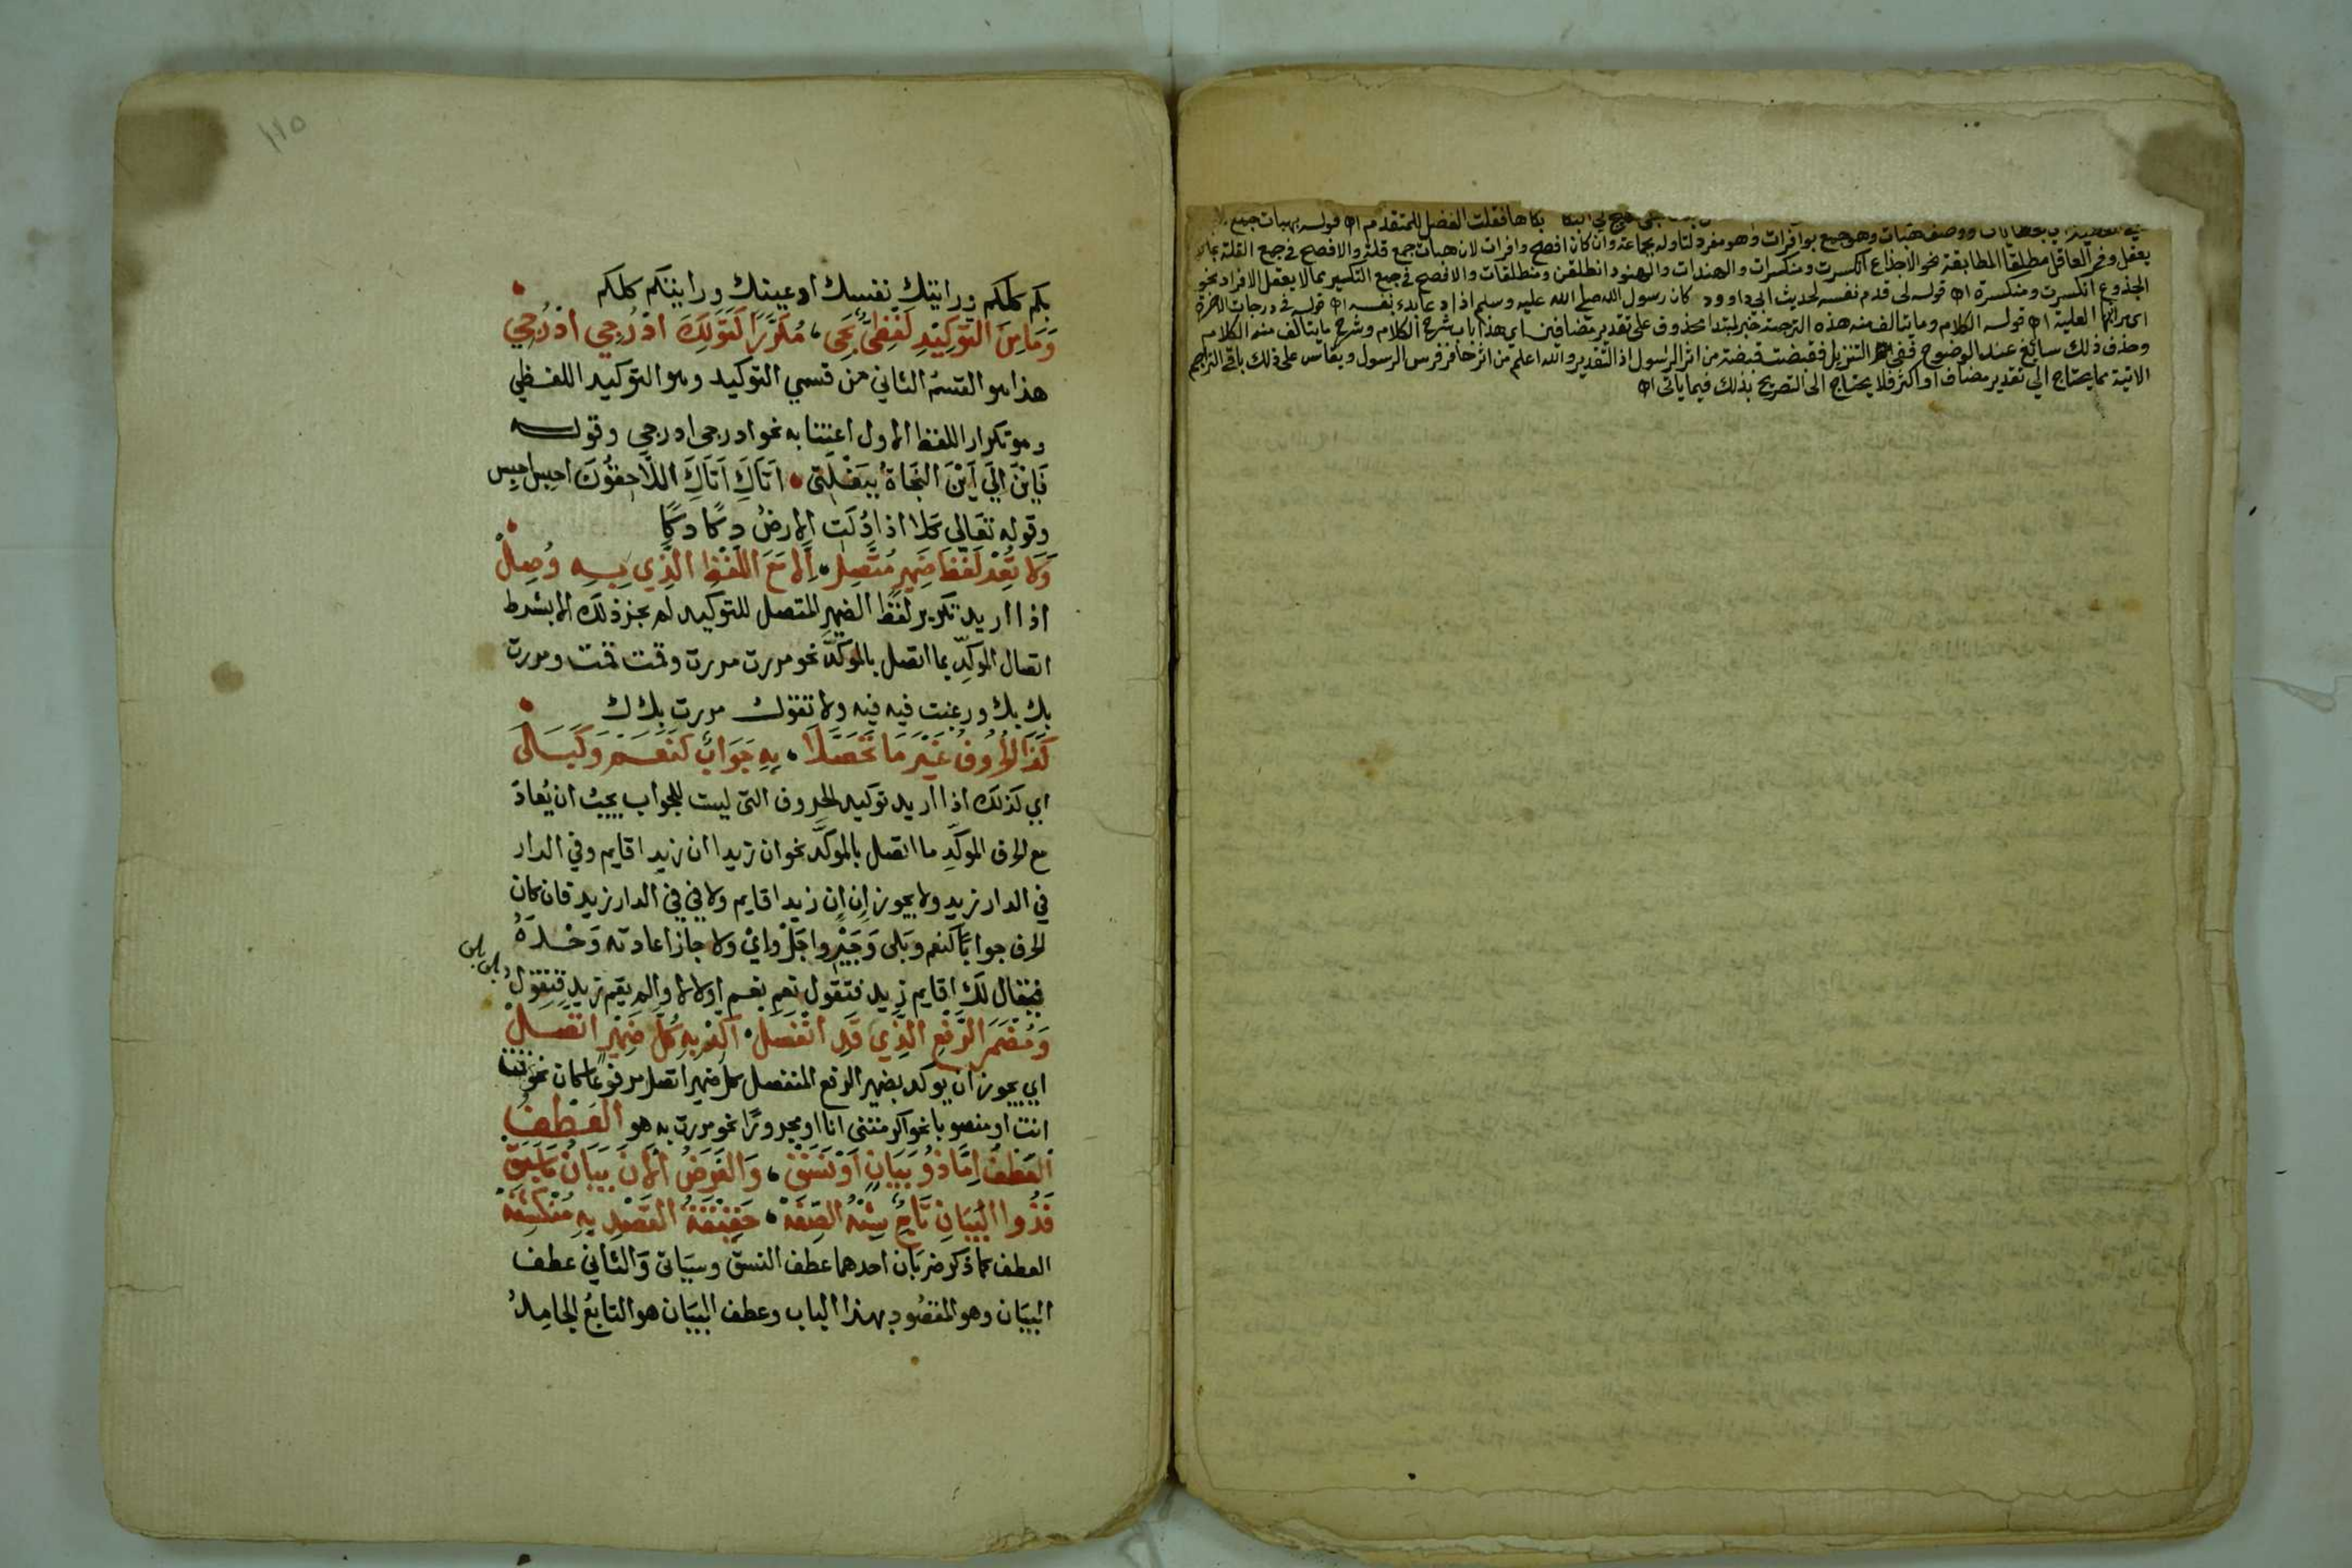 بكاها فقلت الفضل للمتقدم اه قوله بهبات جميع
ووصف هبات وهو جميع بوافرات وهو مفرد لتاوله بجماعة وان كان افصح وافرات لان هبات جمع قلة والافصح في جمع القلة مما لا
يعقل وفى العاقل مطلقا المطابقة نحو الاجذاع انكسرت ومنكسرات والهندات والهنود انطلقن ومنطلقات والافصح في جمع التكسير مما لا يعقل الافراد نحو
الجذوع انكسرت ومنكسرة اه قوله لى قدم نفسه لحديث ابى داوود كان رسول الله صلى الله عليه وسلم اذا دعا بدء بنفسه اه قوله في درجات الاخرة
اى مراتبها العلية اه قوله الكلام وما يتالف منه هذه الترجمة خبر لمبتدا محذوف على تقدير مضافين اي هذا باب شرح الكلام وشرح ما يتالف منه الكلام
وحذف ذلك سائغ عند الوضوح ففي التنزيل فقبضت قبضة من اثر الرسول اذ التقدير والله اعلم من اثر حافر فرس الرسول ويقاس على ذلك باقي التراجم
الاتية مما يحتاج الى تقدير مضاف او اكثر فلا يحتاج الى التصريح بذلك فيما ياتى اه
١١٥
بكم كلكم ورايتك نفسك او عينك ورايتكم كلكم
وَمَا مِنَ التَّوكِيْدِ لَفْظِىٌّ يَجِى، مُكَرَّرًا كَقَوْلِكَ ادْرُجِي ادْرُجِي
هذا هو القسم الثاني من قسمي التوكيد وهو التوكيد اللفظي
وهو تكرار اللفظ الاول اعتنا به نحو ادرجي ادرجي وقوله
فَايْنَ اِلَى اَيْنَ النَّجَاةُ بِبَغْلَتِى اَتَاكَ اَتَاكَ اللَّاحِقُوْنَ احبس احبس
وقوله تعالى كلا اذا دُكَّتِ الارضُ دكًا دكًا
وَلا تُعِدْ لَفْظَ ضَمِيرٍ مُتَّصِلْ، اِلا مَعَ اللَّفْظِ الَّذِي بِهِ وُصِلْ
اذا اريد تكرير لفظ الضمير المتصل للتوكيد لم يجز ذلك الا بشرط
اتصال الموكِّد بما اتصل بالموكَّد نحو مررت مررت وقمت قمت ومررت
بك بك ورغبت فيه فيه ولا تقول مررت بك ك
كَذَا الحُرُوفُ غَيْرَ مَا تَحَصَّلَا، بِهِ جَوَابٌ كَنَعَمْ وَكَبَلَى
اي كذلك اذا اريد توكيد الحروف التى ليست للجواب يجب ان يُعاد
مع الحرف الموكِّد ما اتصل بالموكَّد نحو ان زيدا ان زيدا قايم وفي الدار
في الدار زيد ولا يجوز اِن اِن زيدا قايم ولا في في الدار زيد فان كان
الحرف جوابًا كنعم وبلى وَجَيْرِ واجَلْ واِيْ ولا جاز اعادته وَحْدَهُ
فيقال لك اقايم زيد فتقول نعم نعم او لا لا والم يقم زيد فتقول
بلى بلى
وَمُضْمَرَ الرَّفْعِ الَّذِي قَدِ انْفَصَلْ، اَكِّدْ بِهِ كُلَّ ضَمِيرٍ اتَّصَلْ
اي يجوز ان يوكد بضمير الرفع المنفصل كل ضمير اتصل مرفوعا كان نحو قمت
انت او منصوبا نحو اكرمتنى انا او مجرورًا نحو مررت به هو العَطْفُ
العَطْفُ اِمَّا ذُو بَيَانٍ اَوْ نَسَقْ، وَالغَرَضُ اَلآنَ بَيَانُ مَا سَبَقْ
فَذُوا البَيَانِ تَابِعٌ شِبْهُ الصِّفَهْ، حَقِيْقَةُ القَصْدِ بِهِ مُنْكَشِفَهْ
العطف كما ذكر ضربان احدهما عطف النسق وسياتى وَالثاني عطف
البيَان وهو المقصُود بهذا الباب وعطف البيَان هو التابعُ الجامِدُ